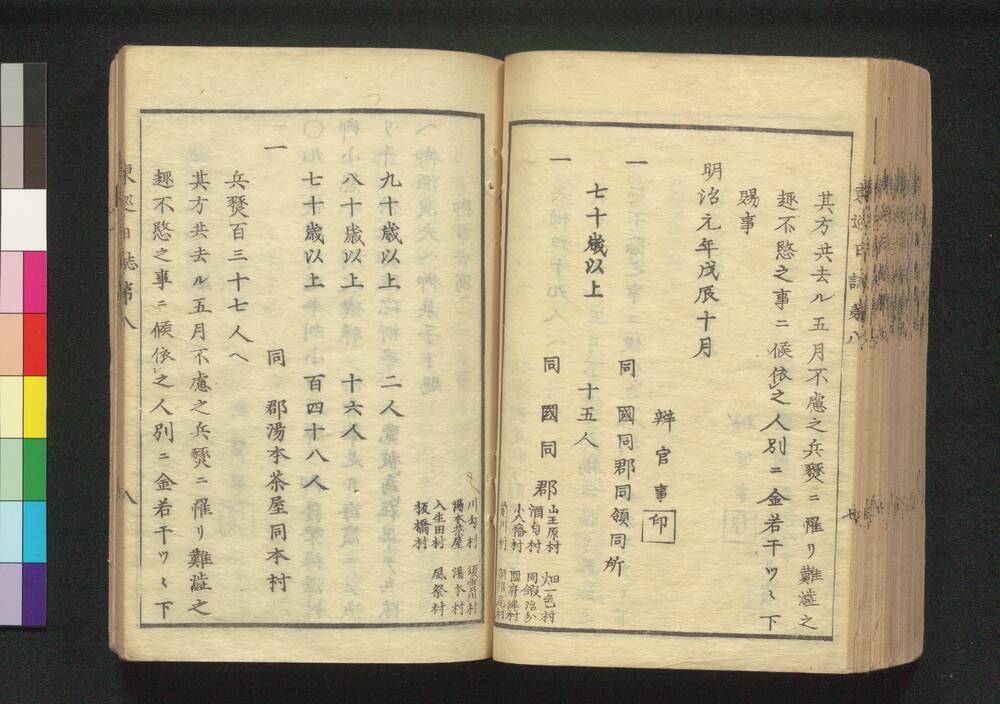 其方共去ル五月不慮之兵燹ニ罹リ難澁之
趣不愍之事ニ候依之人別ニ金若干ツヽ下
賜事
明治元年戊辰十月
辨官事 印
一 同國同郡同領同所
七十歳以上 十五人
一 同國同郡
山王原村 畑一色村
酒匂村 同鍛治分
小八幡村 國府津村
羽根尾村
川勾村 須雲川村
湯本茶屋 湯本村
入生田村 風祭村
板橋村
九十歳以上 二人
八十歳以上 十六人
七十歳以上 百四十八人
一 同郡湯本茶屋同本村
兵燹百三十七人へ
其方共去ル五月不慮之兵燹ニ罹リ難澁之
趣不愍之事ニ候依之人別ニ金若干ツヽ下
東巡日誌第八 八